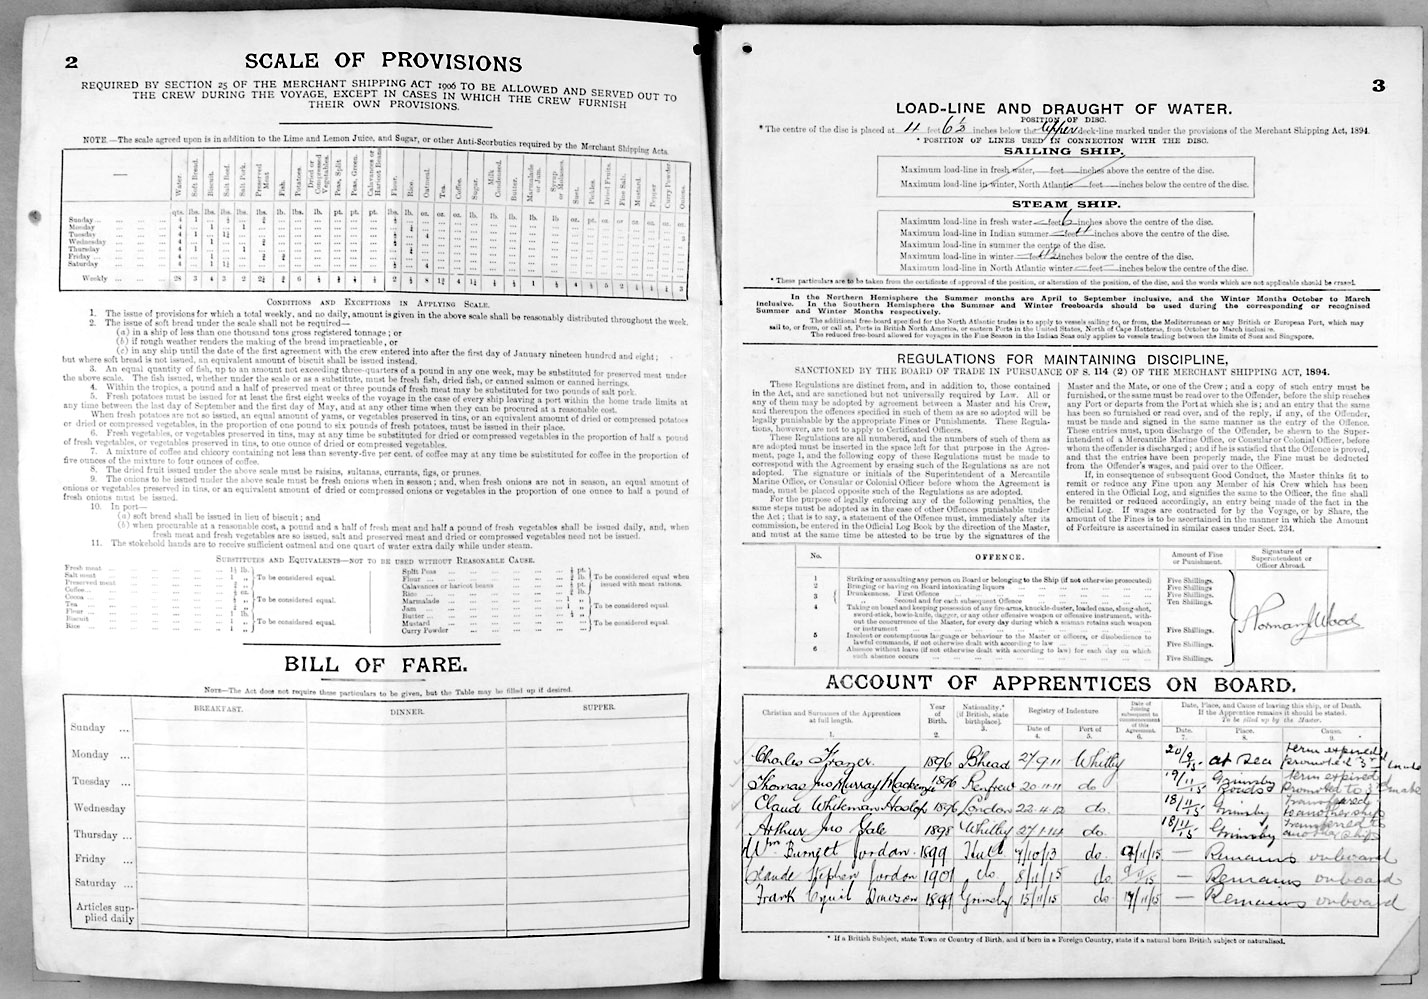 2
SCALE OF PROVISIONS
REQUIRED BY SECTION 25 OF THE MERCHANT SHIPPING ACT 1906 TO BE ALLOWED AND SERVED OUT TO
THE CREW DURING THE VOYAGE, EXCEPT IN CASES IN WHICH THE CREW FURNISH
THEIR OWN PROVISIONS.
NOTE.—The scale agreed upon is in addition to the Lime and Lemon Juice, and Sugar, or other Anti-Scorbutics required by the Merchant Shipping Acts.
Water. Soft Bread. Biscuit. Salt Beef. Salt Pork. Preserved Meat Fish. Potatoes. Dried or Compressed Vegetables. Peas, Split Peas, Green. Calavances or Haricot Beans Flour. Rice. Oatmeal. Tea. Coffee. Sugar. Milk, Condensed. Butter. Marmalade or Jam. Syrup or Molasses. Suet. Pickles. Dried Fruits. Fine Salt. Mustard. Pepper Curry Powder. Onions.
Sunday
Monday
Tuesday
Wednesday
Thursday
Friday
Saturday
Weekly
CONDITIONS AND EXCEPTIONS IN APPLYING SCALE.
1. The issue of provisions for which a total weekly, and no daily, amount is given in the above scale shall be reasonably distributed throughout the week.
2. The issue of soft bread under the scale shall not be required—
(a) in a ship of less than one thousand tons gross registered tonnage; or
(b) if rough weather renders the making of the bread impracticable, or
(c) in any ship until the date of the first agreement with the crew entered into after the first day of January nineteen hundred and eight;
but where soft bread is not issued, an equivalent amount of biscuit shall be issued instead.
3. An equal quantity of fish, up to an amount not exceeding three-quarters of a pound in any one week, may be substituted for preserved meat under
the above scale. The fish issued, whether under the scale or as a substitute, must be fresh fish, dried fish, or canned salmon or canned herrings.
4. Within the tropics, a pound and a half of preserved meat or three pounds of fresh meat may be substituted for two pounds of salt pork.
5. Fresh potatoes must be issued for at least the first eight weeks of the voyage in the case of every ship leaving a port within the home trade limits at
any time between the last day of September and the first day of May, and at any other time when they can be procured at a reasonable cost.
When fresh potatoes are not so issued, an equal amount of yams, or vegetables preserved in tins, or an equivalent amount of dried or compressed potatoes
or dried or compressed vegetables, in the proportion of one pound to six pounds of fresh potatoes, must be issued in their place.
6. Fresh vegetables, or vegetables preserved in tins, may at any time be substituted for dried or compressed vegetables in the proportion of half a pound
of fresh vegetables, or vegetables preserved in tins, to one ounce of dried or compressed vegetables.
7. A mixture of coffee and chicory containing not less than seventy-five per cent. of coffee may at any time be substituted for coffee in the proportion of
five ounces of the mixture to four ounces of coffee.
8. The dried fruit issued under the above scale must be raisins, sultanas, currants, figs, or prunes.
9. The onions to be issued under the above scale must be fresh onions when in season; and, when fresh onions are not in season, an equal amount of
onions or vegetables preserved in tins, or an equivalent amount of dried or compressed onions or vegetables in the proportion of one ounce to half a pound of
fresh onions must be issued.
10. In port—
(a) soft bread shall be issued in lieu of biscuit; and
(b) when procurable at a reasonable cost, a pound and a half of fresh meat and half a pound of fresh vegetables shall be issued daily, and, when
fresh meat and fresh vegetables are so issued, salt and preserved meat and dried or compressed vegetables need not be issued.
11. The stokehold hands are to receive sufficient oatmeal and one quart of water extra daily while under steam.
SUBSTITUTES AND EQUIVALENTS—NOT TO BE USED WITHOUT REASONABLE CAUSE.
Fresh meat
Salt meat
Preserved meat
To be considered equal.
Coffee
Cocoa
Tea
To be considered equal.
Flour
Biscuit
Rice
To be considered equal.
Split Peas
Flour
Calavances or haricot beans
Rice
To be considered equal when issued with meat rations.
Marmalade
Jam
Butter
To be considered equal.
Mustard
Curry Powder
To be considered equal.
BILL OF FARE.
NOTE—The Act does not require these particulars to be given, but the Table may be filled up if desired.
BREAKFAST. DINNER. SUPPER.
Sunday
Monday
Tuesday
Wednesday
Thursday
Friday
Saturday
Articles supplied daily
3
LOAD-LINE AND DRAUGHT OF WATER.
POSITION OF DISC.
* The centre of the disc is placed at 4 feet 6½ inches below the upper deck-line marked under the provisions of the Merchant Shipping Act, 1894.
* POSITION OF LINES USED IN CONNECTION WITH THE DISC.
SAILING SHIP.
Maximum load-line in fresh water, — feet — inches above the centre of the disc.
Maximum load-line in winter, North Atlantic — feet — inches below the centre of the disc.
STEAM SHIP.
Maximum load-line in fresh water — feet 6 inches above the centre of the disc.
Maximum load-line in Indian summer — feet inches above the centre of the disc.
Maximum load-line in summer the centre of the disc.
Maximum load-line in winter — feet inches below the centre of the disc.
Maximum load-line in North Atlantic winter — feet — inches below the centre of the disc.
* These particulars are to be taken from the certificate of approval of the position, or alteration of the position, of the disc, and the words which are not applicable should be erased.
In the Northern Hemisphere the Summer months are April to September inclusive, and the Winter Months October to March
inclusive. In the Southern Hemisphere the Summer and Winter freeboards should be used during the corresponding or recognised
Summer and Winter Months respectively.
The additional free-board specified for the North Atlantic trades is to apply to vessels sailing to, or from, the Mediterranean or any British or European Port, which may
sail to, or from, or call at, Ports in British North America, or eastern Ports in the United States, North of Cape Hatteras, from October to March inclusive.
The reduced free-board allowed for voyages in the Fine Season in the Indian Seas only applies to vessels trading between the limits of Suez and Singapore.
REGULATIONS FOR MAINTAINING DISCIPLINE,
SANCTIONED BY THE BOARD OF TRADE IN PURSUANCE OF S. 114 (2) OF THE MERCHANT SHIPPING ACT, 1894.
These Regulations are distinct from, and in addition to, those contained
in the Act, and are sanctioned but not universally required by Law. All or
any of them may be adopted by agreement between a Master and his Crew,
and thereupon the offences specified in such of them as are so adopted will be
legally punishable by the appropriate Fines or Punishments. These Regulations,
however, are not to apply to Certificated Officers.
These Regulations are all numbered, and the numbers of such of them as
are adopted must be inserted in the space left for that purpose in the Agreement,
page 1, and the following copy of these Regulations must be made to
correspond with the Agreement by erasing such of the Regulations as are not
adopted. The signature or initials of the Superintendent of a Mercantile
Marine Office, or Consular or Colonial Officer before whom the Agreement is
made, must be placed opposite such of the Regulations as are adopted.
For the purpose of legally enforcing any of the following penalties, the
same steps must be adopted as in the case of other Offences punishable under
the Act; that is to say, a statement of the Offence must, immediately after its
commission, be entered in the Official Log Book by the direction of the Master,
and must at the same time be attested to be true by the signatures of the
Master and the Mate, or one of the Crew; and a copy of such entry must be
furnished, or the same must be read over to the Offender, before the ship reaches
any Port or departs from the Port at which she is; and an entry that the same
has been so furnished or read over, and of the reply, if any, of the Offender,
must be made and signed in the same manner as the entry of the Offence.
These entries must, upon discharge of the Offender, be shewn to the Superintendent
of a Mercantile Marine Office, or Consular or Colonial Officer, before
whom the offender is discharged; and if he is satisfied that the Offence is proved,
and that the entries have been properly made, the Fine must be deducted
from the Offender's wages, and paid over to the Officer.
If, in consequence of subsequent Good Conduct, the Master thinks fit to
remit or reduce any Fine upon any Member of his Crew which has been
entered in the Official Log, and signifies the same to the Officer, the fine shall
be remitted or reduced accordingly, an entry being made of the fact in the
Official Log. If wages are contracted for by the Voyage, or by Share, the
amount of the Fines is to be ascertained in the manner in which the Amount
of Forfeiture is ascertained in similar cases under Sect. 234.
No. OFFENCE. Amount of Fine or Punishment. Signature of Superintendent or Officer Abroad.
1 Striking or assaulting any person on Board or belonging to the Ship (if not otherwise prosecuted) Five Shillings.
2 Bringing or having on Board intoxicating liquors Five Shillings.
3 Drunkenness. First Offence Five Shillings.
Second and for each subsequent Offence Ten Shillings.
4 Taking on board and keeping possession of any fire-arms, knuckle-duster, loaded cane, slung-shot,
sword-stick, bowie-knife, dagger, or any other offensive weapon or offensive instrument, without
the concurrence of the Master, for every day during which a seaman retains such weapon
or instrument Five Shillings.
5 Insolent or contemptuous language or behaviour to the Master or officers, or disobedience to
lawful commands, if not otherwise dealt with according to law Five Shillings.
6 Absence without leave (if not otherwise dealt with according to law) for each day on which
such absence occurs Five Shillings.
Norman J Wood
ACCOUNT OF APPRENTICES ON BOARD.
Christian and Surnames of the Apprentices at full length. Year of Birth. Nationality.* [if British, state birthplace]. Registry of Indenture Date of Joining subsequent to commencement of this Agreement. Date, Place, and Cause of leaving this ship, or of Death. If the Apprentice remains it should be stated. To be filled up by the Master.
Date of Port of Date. Place. Cause.
1. 2. 3. 4. 5. 6. 7. 8. 9.
Charles Frazer. 1896 B'head 27 9 11 Whitby 20/9/15 at sea term expired promoted 3rd mate
Thomas Jno Murray Mackenzie 1896 Renfrew 20.11.11 do 19/11/15 Grimsby Roads term expired promoted to 3rd mate
Claud Whiteman Haslop 1896 London 22.4.12 do. 18/11/15 Grimsby transferred to another ship
Arthur Jno Yale 1898 Whitby 27.1.14 do. 18/11/15 Grimsby transferred to another ship
Wm Burnett Jordan. 1899 Hull 7/10/13 do. /11/15 — Remains onboard
Claude Stephen Jordon 1901 do. 8/11/15 do. — Remains onboard
Frank Cyril Dawson 1899 Grimsby 15/11/15 do /11/15 — Remains onboard
* If a British Subject, state Town or Country of Birth, and if born in a Foreign Country, state if a natural born British subject or naturalised.